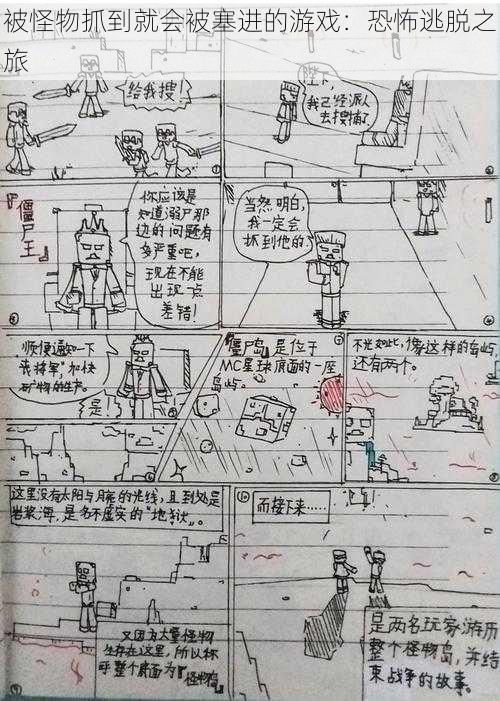 被怪物抓到就会被塞进的游戏：恐怖逃脱之
旅
给我搜
陛下，
我已经派人
去搜捕了
『僵尸王』
你应该是
知道溺尸那
边的问题有
多严重吧，
现在不能
出现一点
差错！
当然明白，
我一定会
抓到他的.
顺便通知一下
将军"加快
矿物的生产。
是！
"僵尸岛"是位于
MC星球底面的一座
岛屿。
不光如此，像这样的岛屿
还有两个。
这里没有太阳与月亮的光线，且到处是
岩浆海，是名不虚实的"地狱"。
又因为大量怪物
生存在这里，所以称
呼整个底面为『怪物岛』
而接下来……
是两名玩家游历
整个怪物岛，并结
束战争的故事。